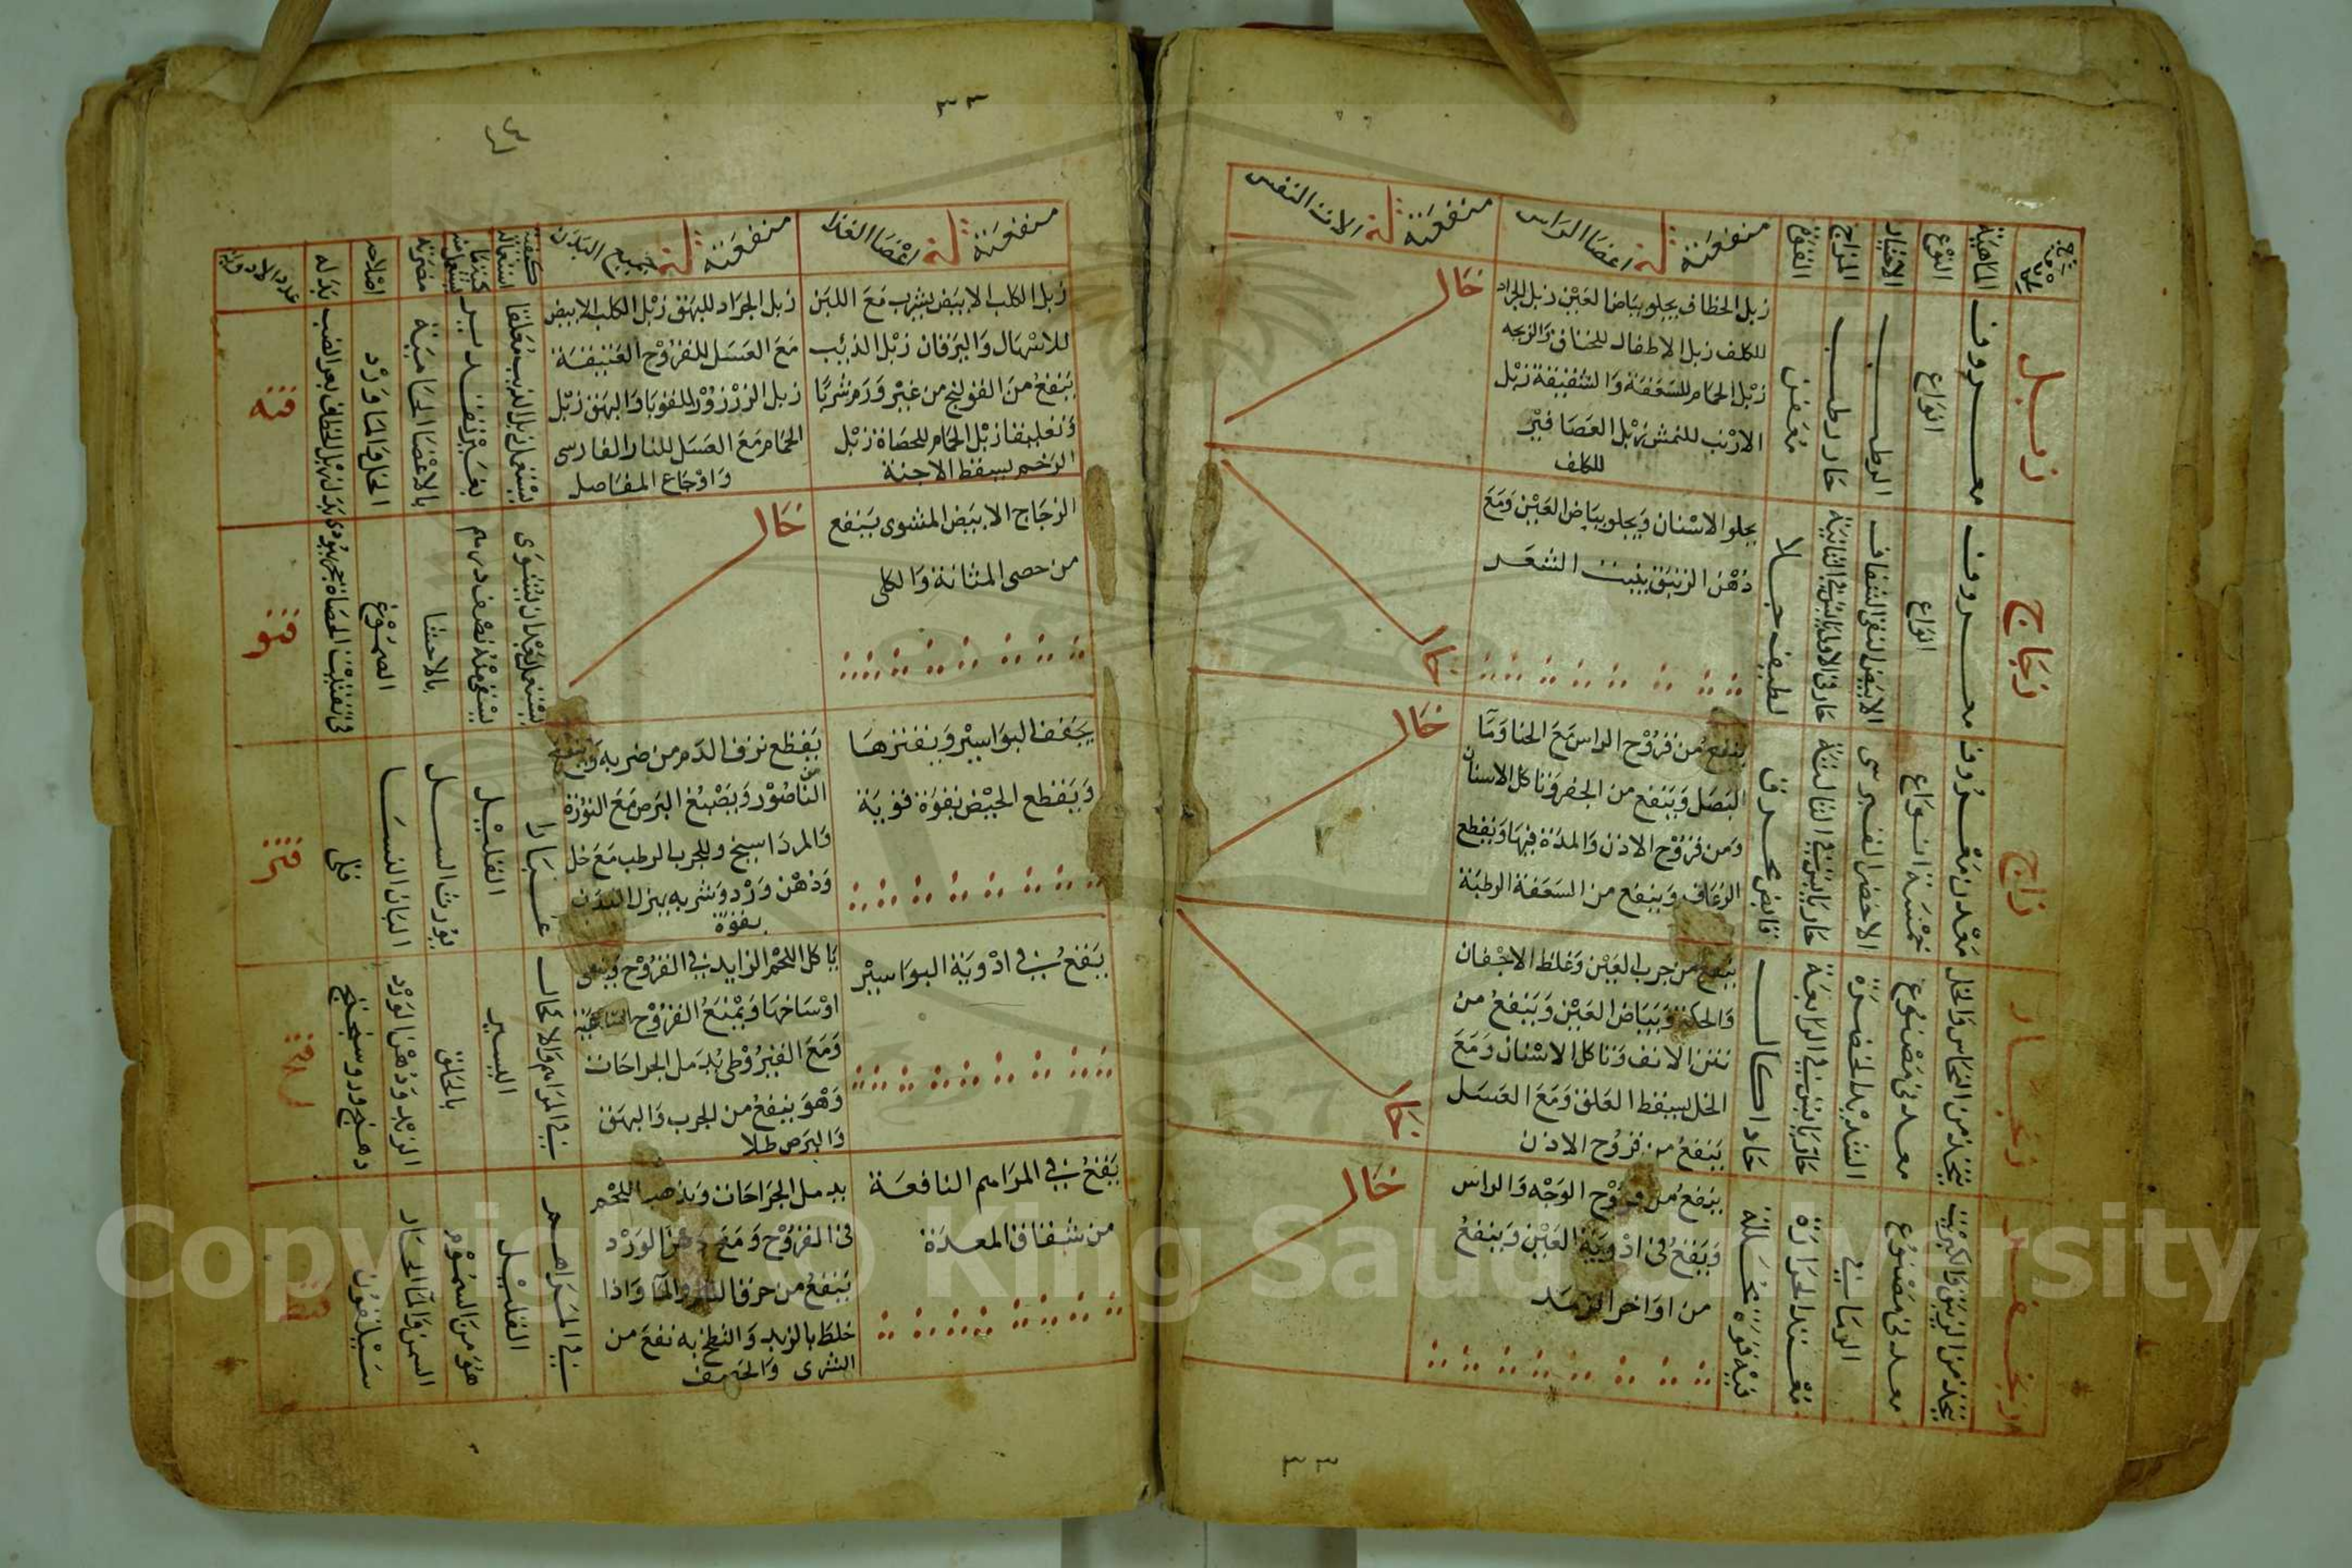 الماهية
النوع
الاختيار
المزاج
القوة
منفعته في اعضا الراس
منفعته في الات النفس
زبل
معروف
انواع
الرطب
حار رطب
معفن
زبل الخطاف يجلو بياض العين زبل الجراد
للكلف زبل الاطفال للخناق والزبحه
زبل الحمام للسعفة والشقيقة زبل
الارنب للنمش زبل العصافير
للكلف
خال
زجاج
معروف
انواع
الابيض النقي الشفاف
حار في الاولى يابس في الثانية
لطيف جلا
يجلو الاسنان ويجلو بياض العين ومع
دهن الزنبق ينبت الشعر
خال
زاج
معدن معروف
خمسة انواع
الاخضر القبرسي
حار يابس في الثالثة
قابض محرق
ينفع من قروح الراس مع الحنا وما
البصل وينفع من الحفر وتاكل الاسنان
ومن قروح الاذن والمدة فيها ويقطع
الرعاف وينفع من السعفة الرطبة
خال
زنجار
يتخذ من النحاس والخل
معدني مصنوع
الشديد الخضرة
حار يابس في الرابعة
حاد اكال
ينفع من جرب العين وغلظ الاجفان
والحكة وبياض العين وينفع من
نتن الانف وتاكل الاسنان ومع
الخل يسقط العلق ومع العسل
ينفع من قروح الاذن
خال
زنجفر
يتخذ من الزيبق والكبريت
معدني مصنوع
الرماني
معتدل الحرارة
فيه قوة محللة
ينفع من قروح الوجه والراس
ويقع في ادوية العين وينفع
من اواخر الرمد
خال
٣٣
منفعته في اعضا الغذا
منفعته في جميع البدن
كيفية استعماله
كمية ما يستعمل منه
مضرته
اصلاحه
بدله
عدد الادوية
زبل الكلب الابيض يشرب مع اللبن
للاسهال واليرقان زبل الذئب
ينفع من القولنج من غير ورم شربا
وتعليقا زبل الحمام للحصاة زبل
الرخم يسقط الاجنة
زبل الجراد للبهق زبل الكلب الابيض
مع العسل للقروح العتيقة
زبل الزرزور للقوبا والبهق زبل
الحمام مع العسل للنار الفارسي
واوجاع المفاصل
يستعمل زبل الذيب معلقا
بغير تقدير
بالاعضا الحامية
الخل والماورد
قنه
الزجاج الابيض المشوي ينفع
من حصى المثانة والكلى
خال
يستعمل بعد ان يشوى
يسقى منه نصف درهم
بالاحشا
الصموغ
في تفتيت الحصاة حجر يهودي
قنو
يجفف البواسير ويفتزها
ويقطع الحيض بقوة قوية
يقطع نزف الدم من ضربه وينفع
الناصور ويصبغ البرص مع النورة
والمرداسنج وللجرب الرطب مع خل
ودهن ورد وشربه يهزل البدن
بقوة
غبارا
القليل
يورث السل
البان النسا
قلي
قنز
ينفع في ادوية البواسير
ياكل اللحم الزايد في القروح وينقي
اوساخها ويمنع القروح الساعية
ومع القيروطي يدمل الجراحات
وهو ينفع من الجرب والبهق
والبرص طلا
في المراهم والاكحال
اليسير
بالحلق
الزبد ودهن الورد
دهنج وروسختج
يقع في المراهم النافعة
من شقاق المعدة
يدمل الجراحات ويذهب اللحم
في القروح ومع دهن الورد
ينفع من حرق النار والما واذا
خلط بالزبد والطخ به نفع من
الشري والحصف
في المراهم
القليل
هو من السموم
السمن والما الحار
سيلقون
٣٣
Copyright © King Saud University
1957